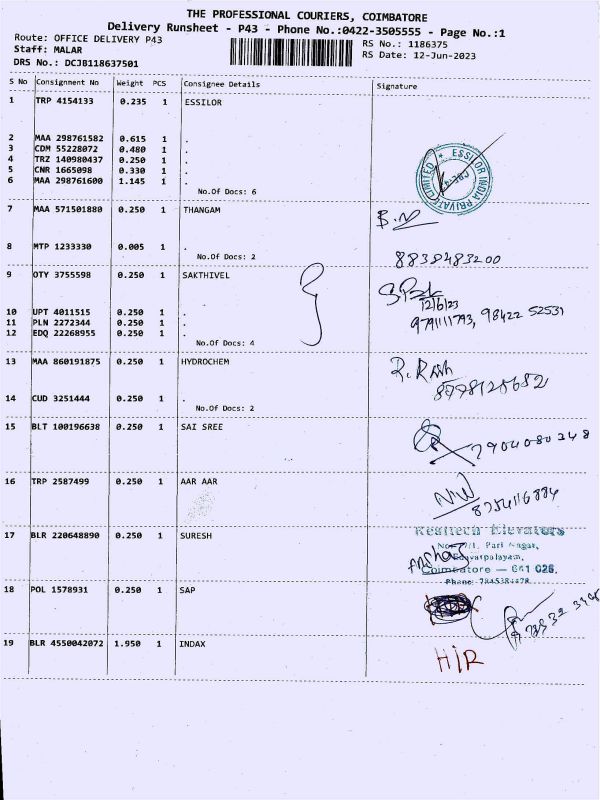 THE PROFESSIONAL COURIERS, COIMBATORE
Delivery Runsheet - P43 - Phone No.:0422-3505555 - Page No.:1
Route: OFFICE DELIVERY P43
RS No.: 1186375
Staff: MALAR
RS Date: 12-Jun-2023
DRS No.: DCJB118637501
S No Consignment No Weight PCS Consignee Details Signature
1 TRP 4154133 0.235 1 ESSILOR
2 MAA 298761582 0.615 1 .
3 CDM 55228072 0.480 1 .
4 TRZ 140980437 0.250 1 .
5 CNR 1665098 0.330 1 .
6 MAA 298761600 1.145 1 .
No.Of Docs: 6
ESSILOR INDIA PRIVATE LIMITED
7 MAA 571501880 0.250 1 THANGAM
8 MTP 1233330 0.005 1 .
No.Of Docs: 2
8838483200
9 OTY 3755598 0.250 1 SAKTHIVEL
12/6/23
10 UPT 4011515 0.250 1 .
9791111793, 98422 52531
11 PLN 2272344 0.250 1 .
12 EDQ 22268955 0.250 1 .
No.Of Docs: 4
13 MAA 860191875 0.250 1 HYDROCHEM
14 CUD 3251444 0.250 1 .
No.Of Docs: 2
8778125652
15 BLT 100196638 0.250 1 SAI SREE
7904080348
16 TRP 2587499 0.250 1 AAR AAR
8754116884
17 BLR 220648890 0.250 1 SURESH
Realtech Elevators
Pari Nagar,
Coimbatore — 641 026.
18 POL 1578931 0.250 1 SAP
19 BLR 4550042072 1.950 1 INDAX
HIR